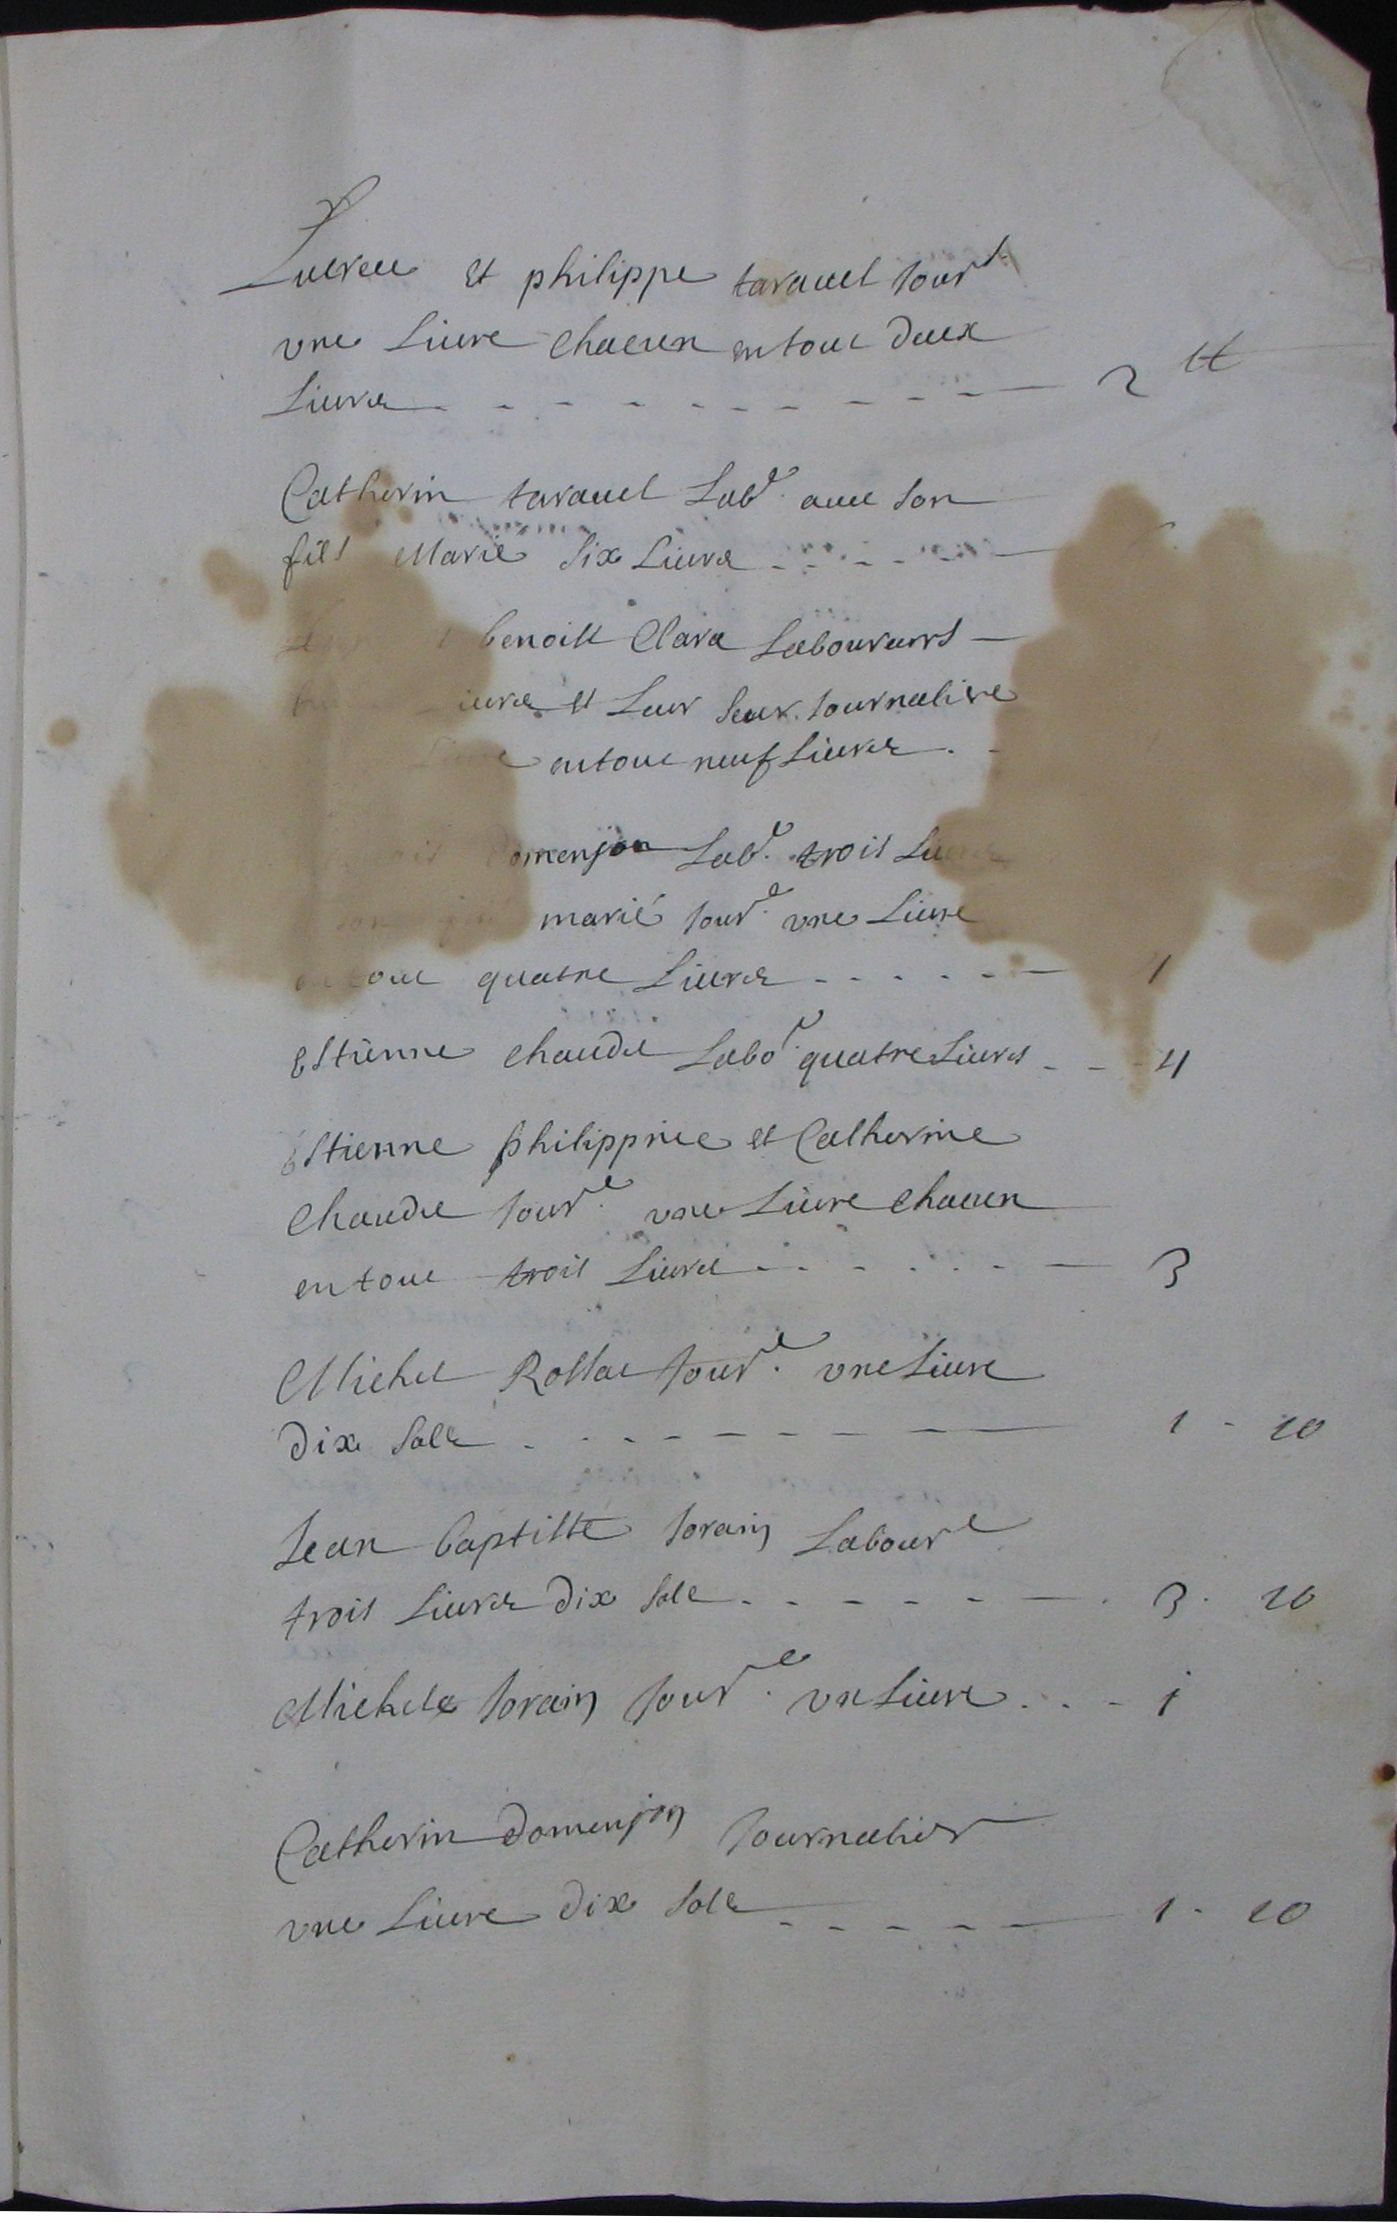 et philippe tarauel Jour^r
vne Liure Chacun en tout deux
Liures - - - - - - - - - - 2 tt
Catherin tarauel Lab^r. auec son
fils Marié six Liures - - - - - -
benoist Clara Laboureurs -
et Leur seur Journaliere
en tout neuf Liures . -
Lab^r. trois
marié Jour^r. vne Liure
quatre Liures - - - - - -
Estienne Chaudet Labo^r. quatre Liures - - - 4
Estienne philippine et Catherine
Chaudet Jour^r. vne Liure Chacun
en tout trois Liures - - - - - - 3
Michel Jour^r. vne Liure
dix sols - - - - - - - - 1 - 10
Jean baptiste Jorain Labour^r
trois Liures dix sols - - - - - - 3 . 10
Michele Jorain Jour^r. vn Liure . . - 1
Catherin domenjon Journalier
vne Liure dix sols - - - - - 1 - 10